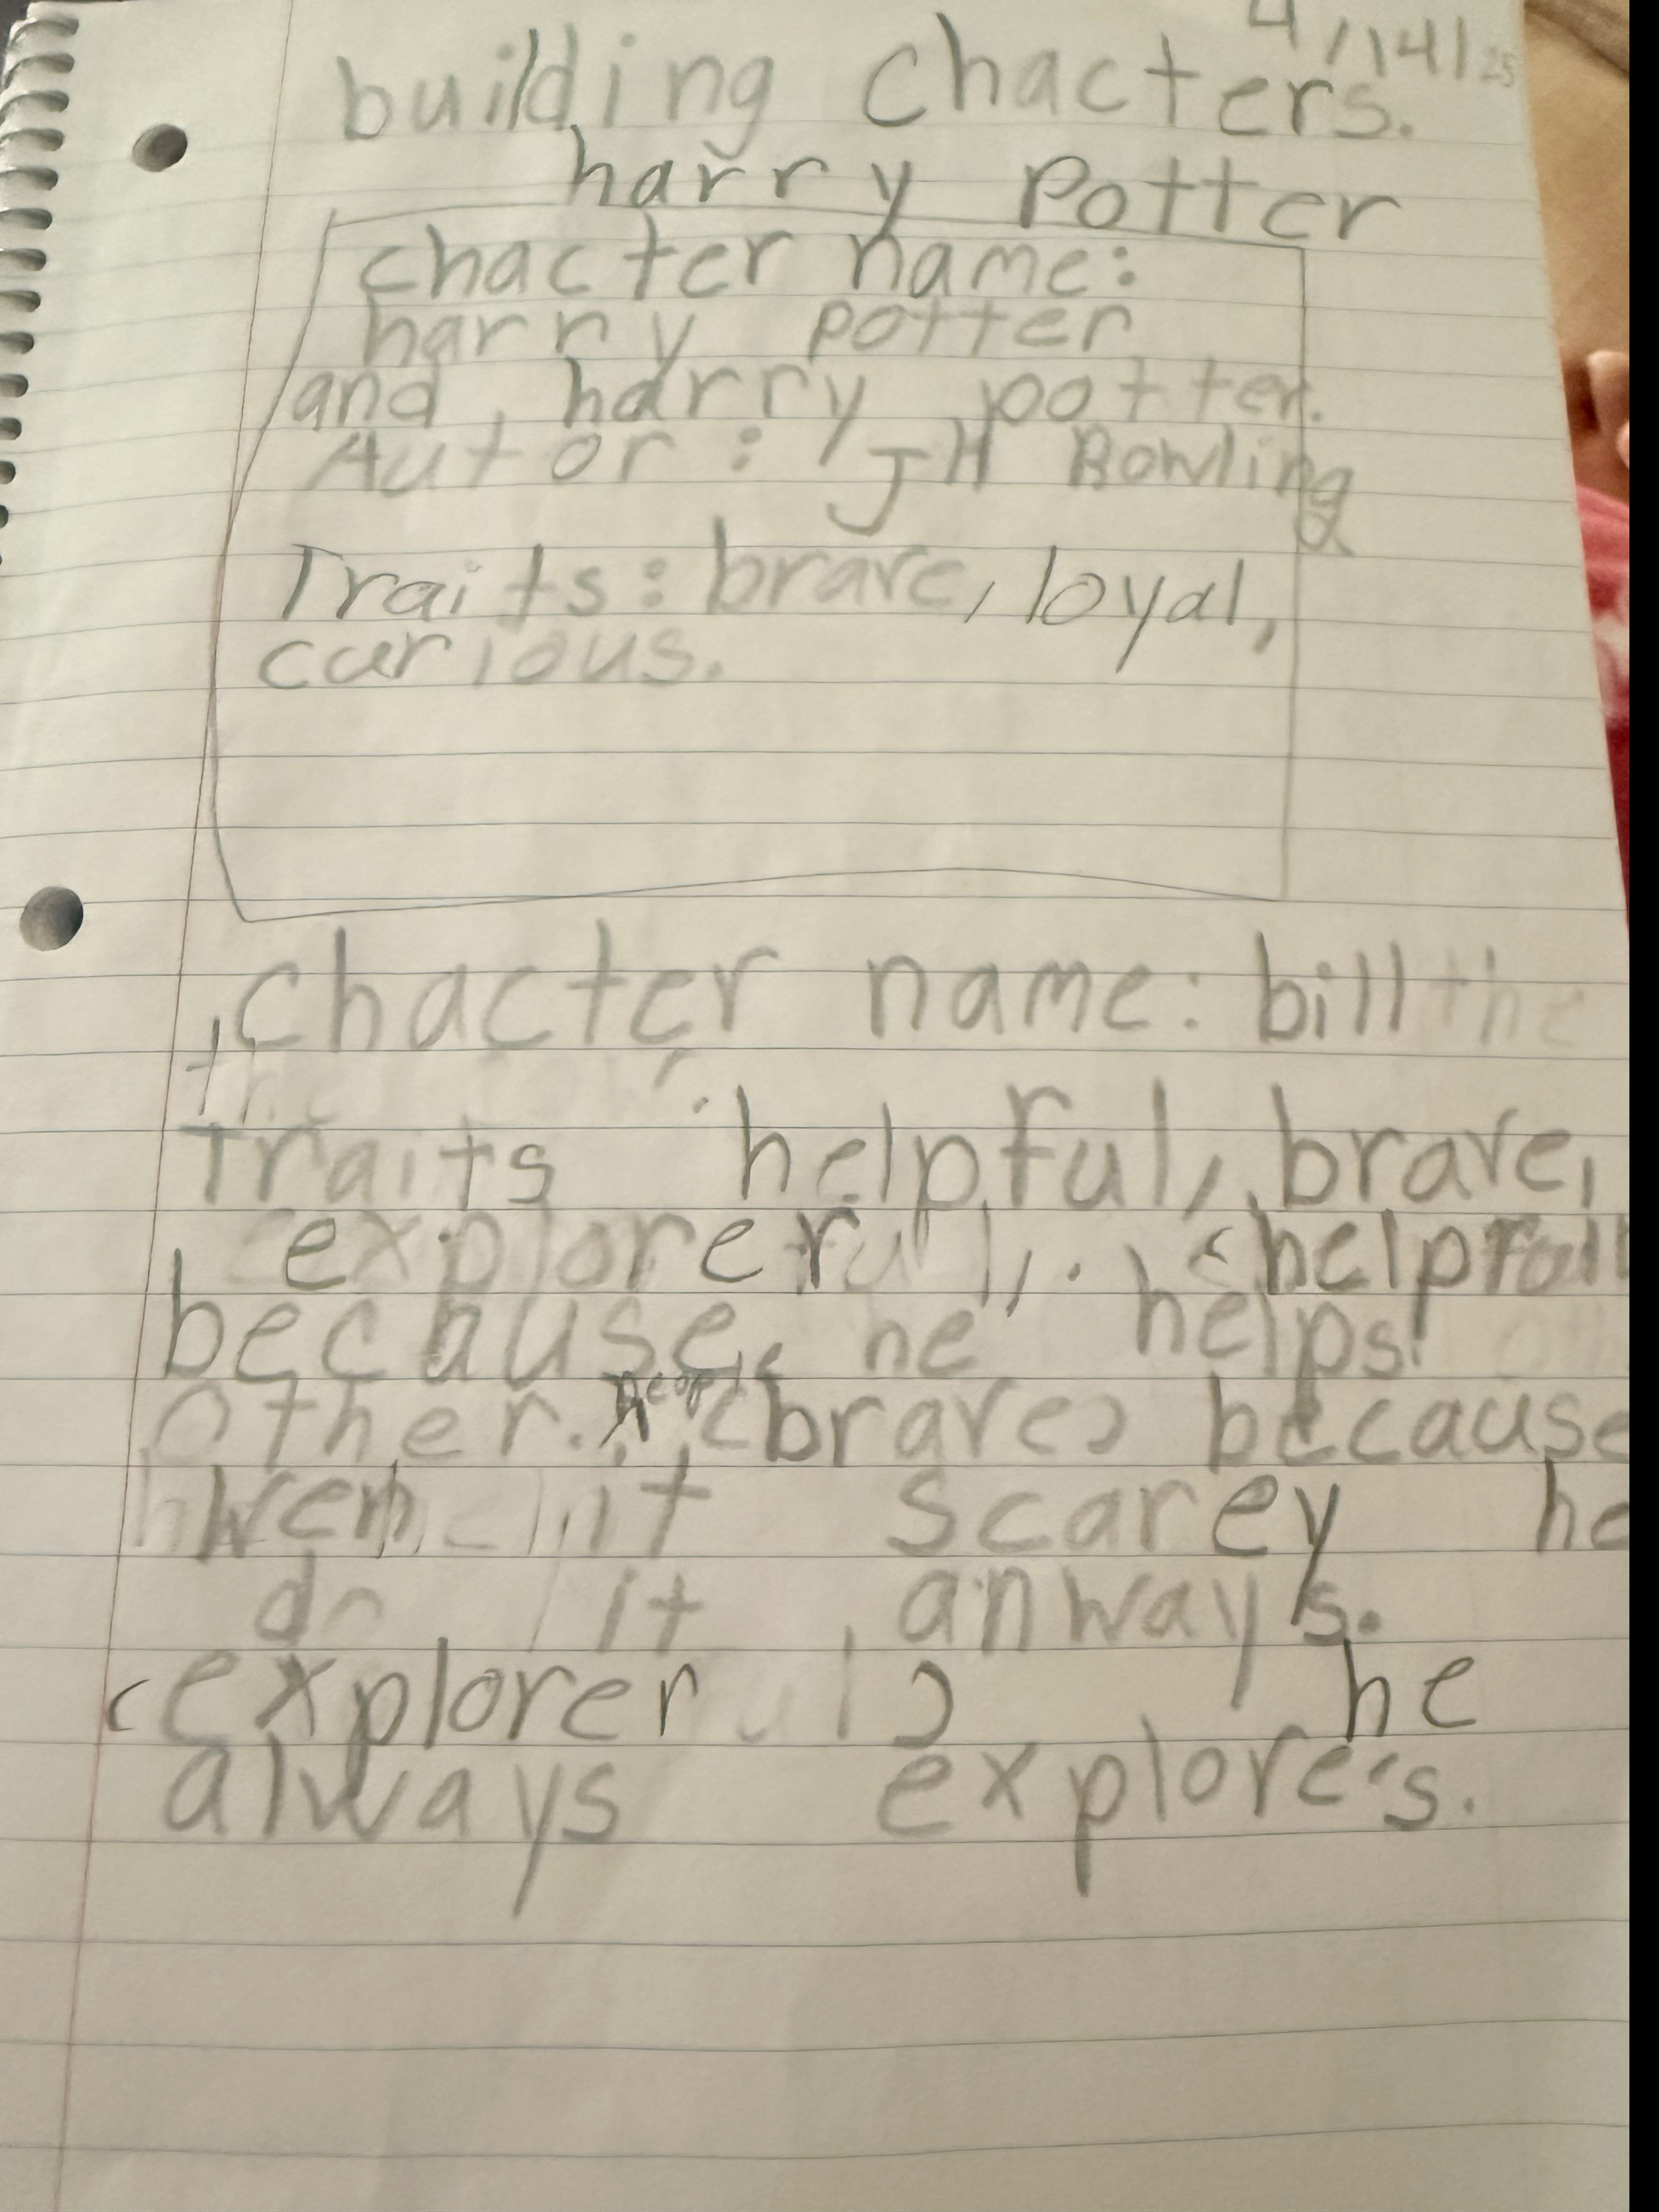 4/14/25
building chacters.
harry Potter
chacter name:
harry potter
and harry potter.
Autor: JH Rowling
Traits: brave, loyal,
curious.
chacter name: bill the
Traits helpful, brave,
explorer
because he helps
other. people (brave) because
wen it scarey he
do it anways.
(explorer) he
always explore's.